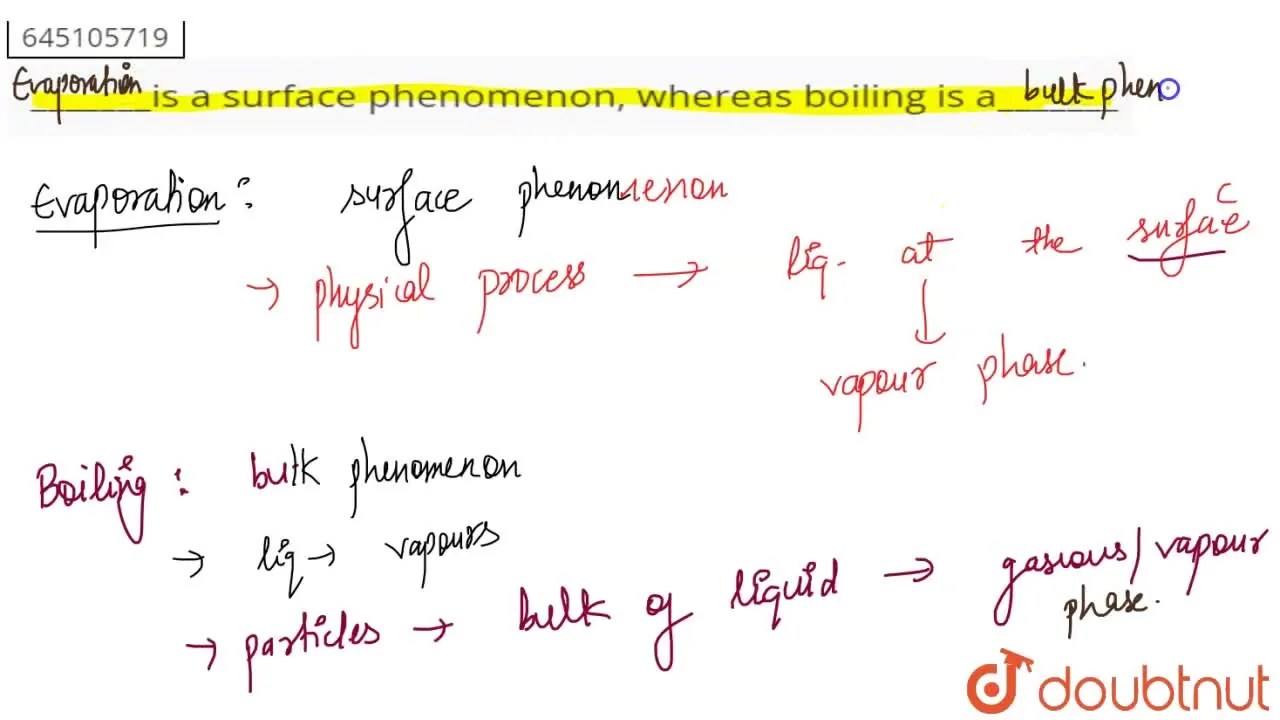 645105719
Evaporation is a surface phenomenon, whereas boiling is a bulk pheno
Evaporation : surface phenomenon
→ physical process → liq. at the surface
↓
vapour phase.
Boiling : bulk phenomenon
→ liq → vapours
→ particles → bulk of liquid → gasious/vapour
phase.
doubtnut